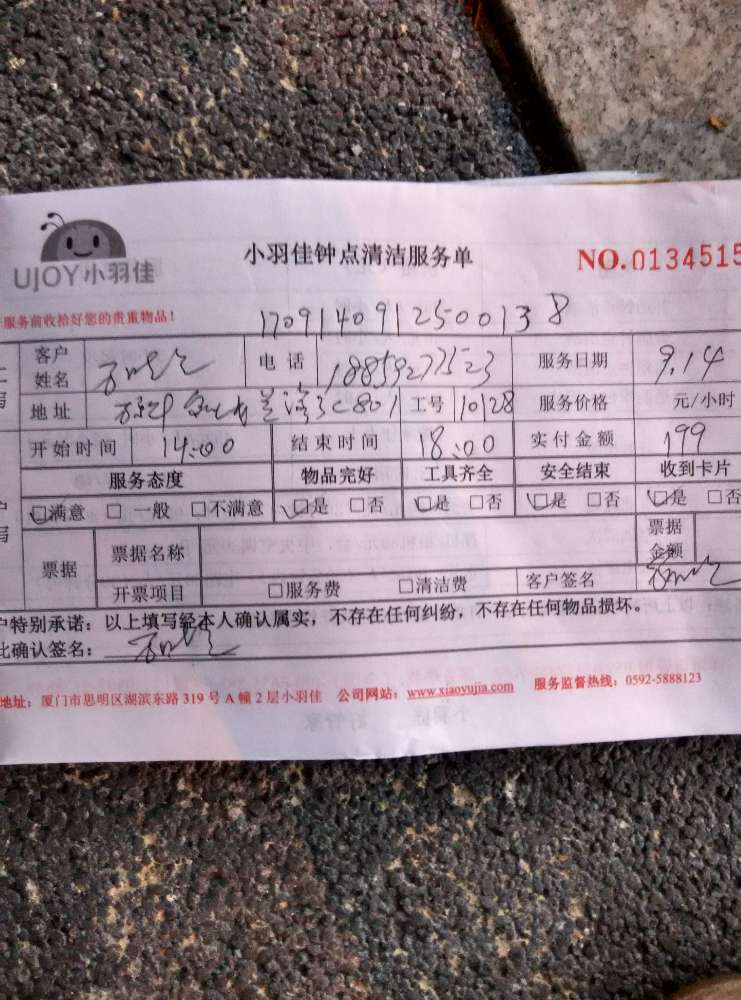 UJOY小羽佳
小羽佳钟点清洁服务单
NO.0134515
服务前收拾好您的贵重物品!
170914091250 0138
客户姓名 电话 18859277523 服务日期 9.14
地址 801 工号 10128 服务价格 元/小时
开始时间 14:00 结束时间 18:00 实付金额 199
服务态度 物品完好 工具齐全 安全结束 收到卡片
☑满意 □一般 □不满意 ☑是 □否 ☑是 □否 ☑是 □否 ☑是 □否
票据 票据名称 票据金额
开票项目 □服务费 □清洁费 客户签名
户特别承诺:以上填写经本人确认属实,不存在任何纠纷,不存在任何物品损坏。
此确认签名:
地址:厦门市思明区湖滨东路 319 号 A 幢 2 层小羽佳 公司网站:www.xiaoyujia.com 服务监督热线:0592-5888123